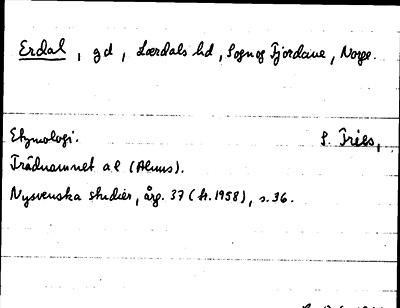 Erdal, gd, Lærdals hd, Sogn og Fjordane, Norge.
Etymologi. S. Fries,
Trädnamnet al (Alnus).
Nysvenska studier, årg. 37 (tr. 1958), s. 36.